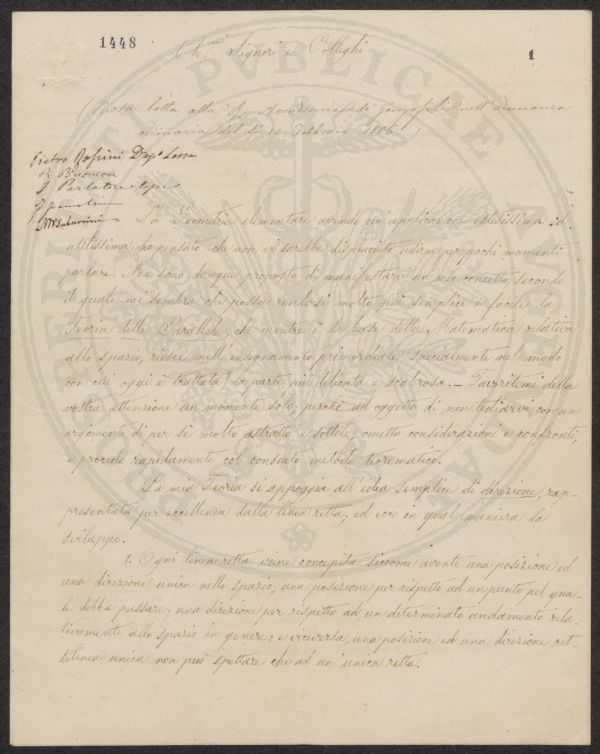 1448
1
Ch.mi Signori e Colleghi
(Nota letta alla R. Accademia de' Georgofili nell'adunanza
ordinaria del dì 14 Febbraio 1886)
Pietro
La Geometria elementare avendo un'applicazione estesissima ed
utilissima, ho pensato che non vi sarebbe dispiaciuto udirne per pochi momenti
parlare. Mi sono dunque proposto di manifestarvi un mio concetto, secondo
il quale mi sembra che possa rendersi molto più semplice e facile la
Teoria delle Parallele, che mentre è la base della Matematica relativa
allo spazio, riesce nell'insegnamento primordiale specialmente nel modo
con cui oggi è trattata la parte più delicata e scabrosa. – Favoritemi della
vostra attenzione un momento solo, perchè ad oggetto di non tediarvi con un
argomento di per sè molto astratto e sottile, ometto considerazioni e confronti,
e procedo rapidamente col consueto metodo teorematico.
La mia Teoria si appoggia all'idea semplice di direzione, rap-
presentata per eccellenza dalla linea retta; ed ecco in qual maniera la
sviluppo.
1. Ogni linea retta viene concepita siccome avente una posizione ed
una direzione unica nello spazio; una posizione per rispetto ad un punto pel qua-
le debba passare; una direzione per rispetto ad un determinato andamento rela-
tivamente allo spazio in genere: e viceversa, una posizione ed una direzione ret-
tilinea unica non può spettare che ad un'unica retta.